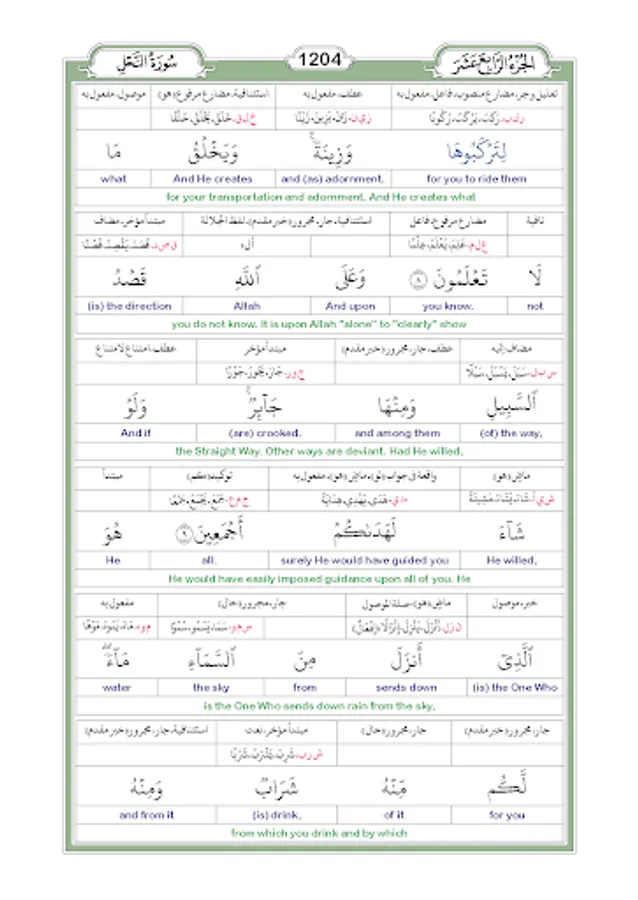 سُورَةُ النَّحْلِ 1204 الجُزْءُ الرَّابِعَ عَشَرَ
تعليل وجر، مضارع منصوب، فاعل، مفعول به عطف، مفعول به استئنافية، مضارع مرفوع (هو) موصول، مفعول به
ر ك ب، رَكِبَ، يَرْكَبُ، رُكُوبًا ز ي ن، زَانَ، يَزِينُ، زَيْنًا خ ل ق، خَلَقَ، يَخْلُقُ، خَلْقًا
لِتَرْكَبُوهَا وَزِينَةً ۚ وَيَخْلُقُ مَا
for you to ride them and (as) adornment. And He creates what
for your transportation and adornment. And He creates what
نافية مضارع مرفوع، فاعل استئنافية، جار، مجرور (خبر مقدم)، لفظ الجلالة مبتدأ مؤخر، مضاف
ع ل م، عَلِمَ، يَعْلَمُ، عِلْمًا أ ل ه ق ص د، قَصَدَ، يَقْصِدُ، قَصْدًا
لَا تَعْلَمُونَ ٨ وَعَلَى ٱللَّهِ قَصْدُ
not you know. And upon Allah (is) the direction
you do not know. It is upon Allah "alone" to "clearly" show
مضاف إليه عطف، جار، مجرور (خبر مقدم) مبتدأ مؤخر عطف، امتناع لامتناع
س ب ل، سَبَلَ، يَسْبُلُ، سَبْلًا ج و ر، جَارَ، يَجُورُ، جَوْرًا
ٱلسَّبِيلِ وَمِنْهَا جَآئِرٌ ۚ وَلَوْ
(of) the way, and among them (are) crooked. And if
the Straight Way. Other ways are deviant. Had He willed,
ماض (هو) واقعة في جواب (لو)، ماض (هو)، مفعول به توكيد (كم) مبتدأ
ش ي أ، شَاءَ، يَشَاءُ، مَشِيئَةً ه د ي، هَدَى، يَهْدِي، هِدَايَةً ج م ع، جَمَعَ، يَجْمَعُ، جَمْعًا
شَآءَ لَهَدَىٰكُمْ أَجْمَعِينَ ٩ هُوَ
He willed, surely He would have guided you all. He
He would have easily imposed guidance upon all of you. He
خبر، موصول ماض (هو)، صلة الموصول جار، مجرور (حال) مفعول به
ن ز ل، أَنْزَلَ، يُنْزِلُ، إِنْزَالًا (إِفْعَال) س م و، سَمَا، يَسْمُو، سُمُوًّا م و ه، مَاهَ، يَمُوهُ، مَوْهًا
ٱلَّذِىٓ أَنزَلَ مِنَ ٱلسَّمَآءِ مَآءً ۖ
(is) the One Who sends down from the sky water
is the One Who sends down rain from the sky,
جار، مجرور (خبر مقدم) جار، مجرور (حال) مبتدأ مؤخر، نعت استئنافية، جار، مجرور (خبر مقدم)
ش ر ب، شَرِبَ، يَشْرَبُ، شَرْبًا
لَّكُم مِّنْهُ شَرَابٌ وَمِنْهُ
for you of it (is) drink, and from it
from which you drink and by which